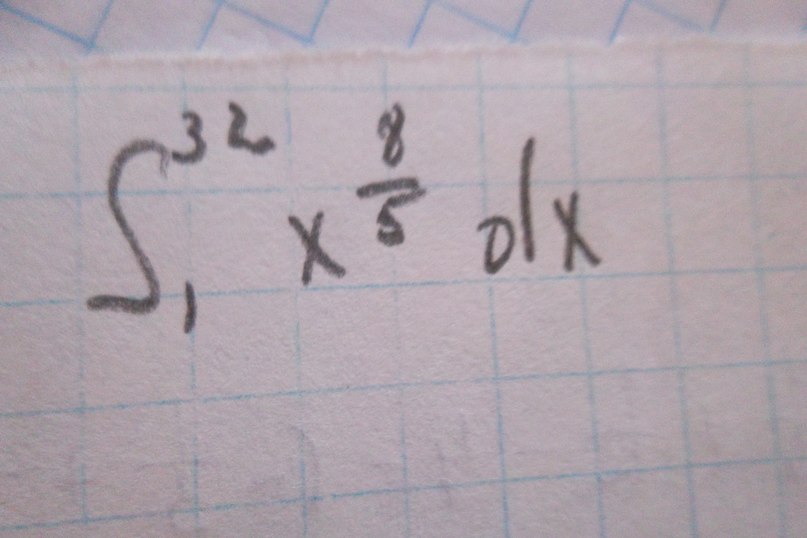 ∫₁³² x^(8/5) dx